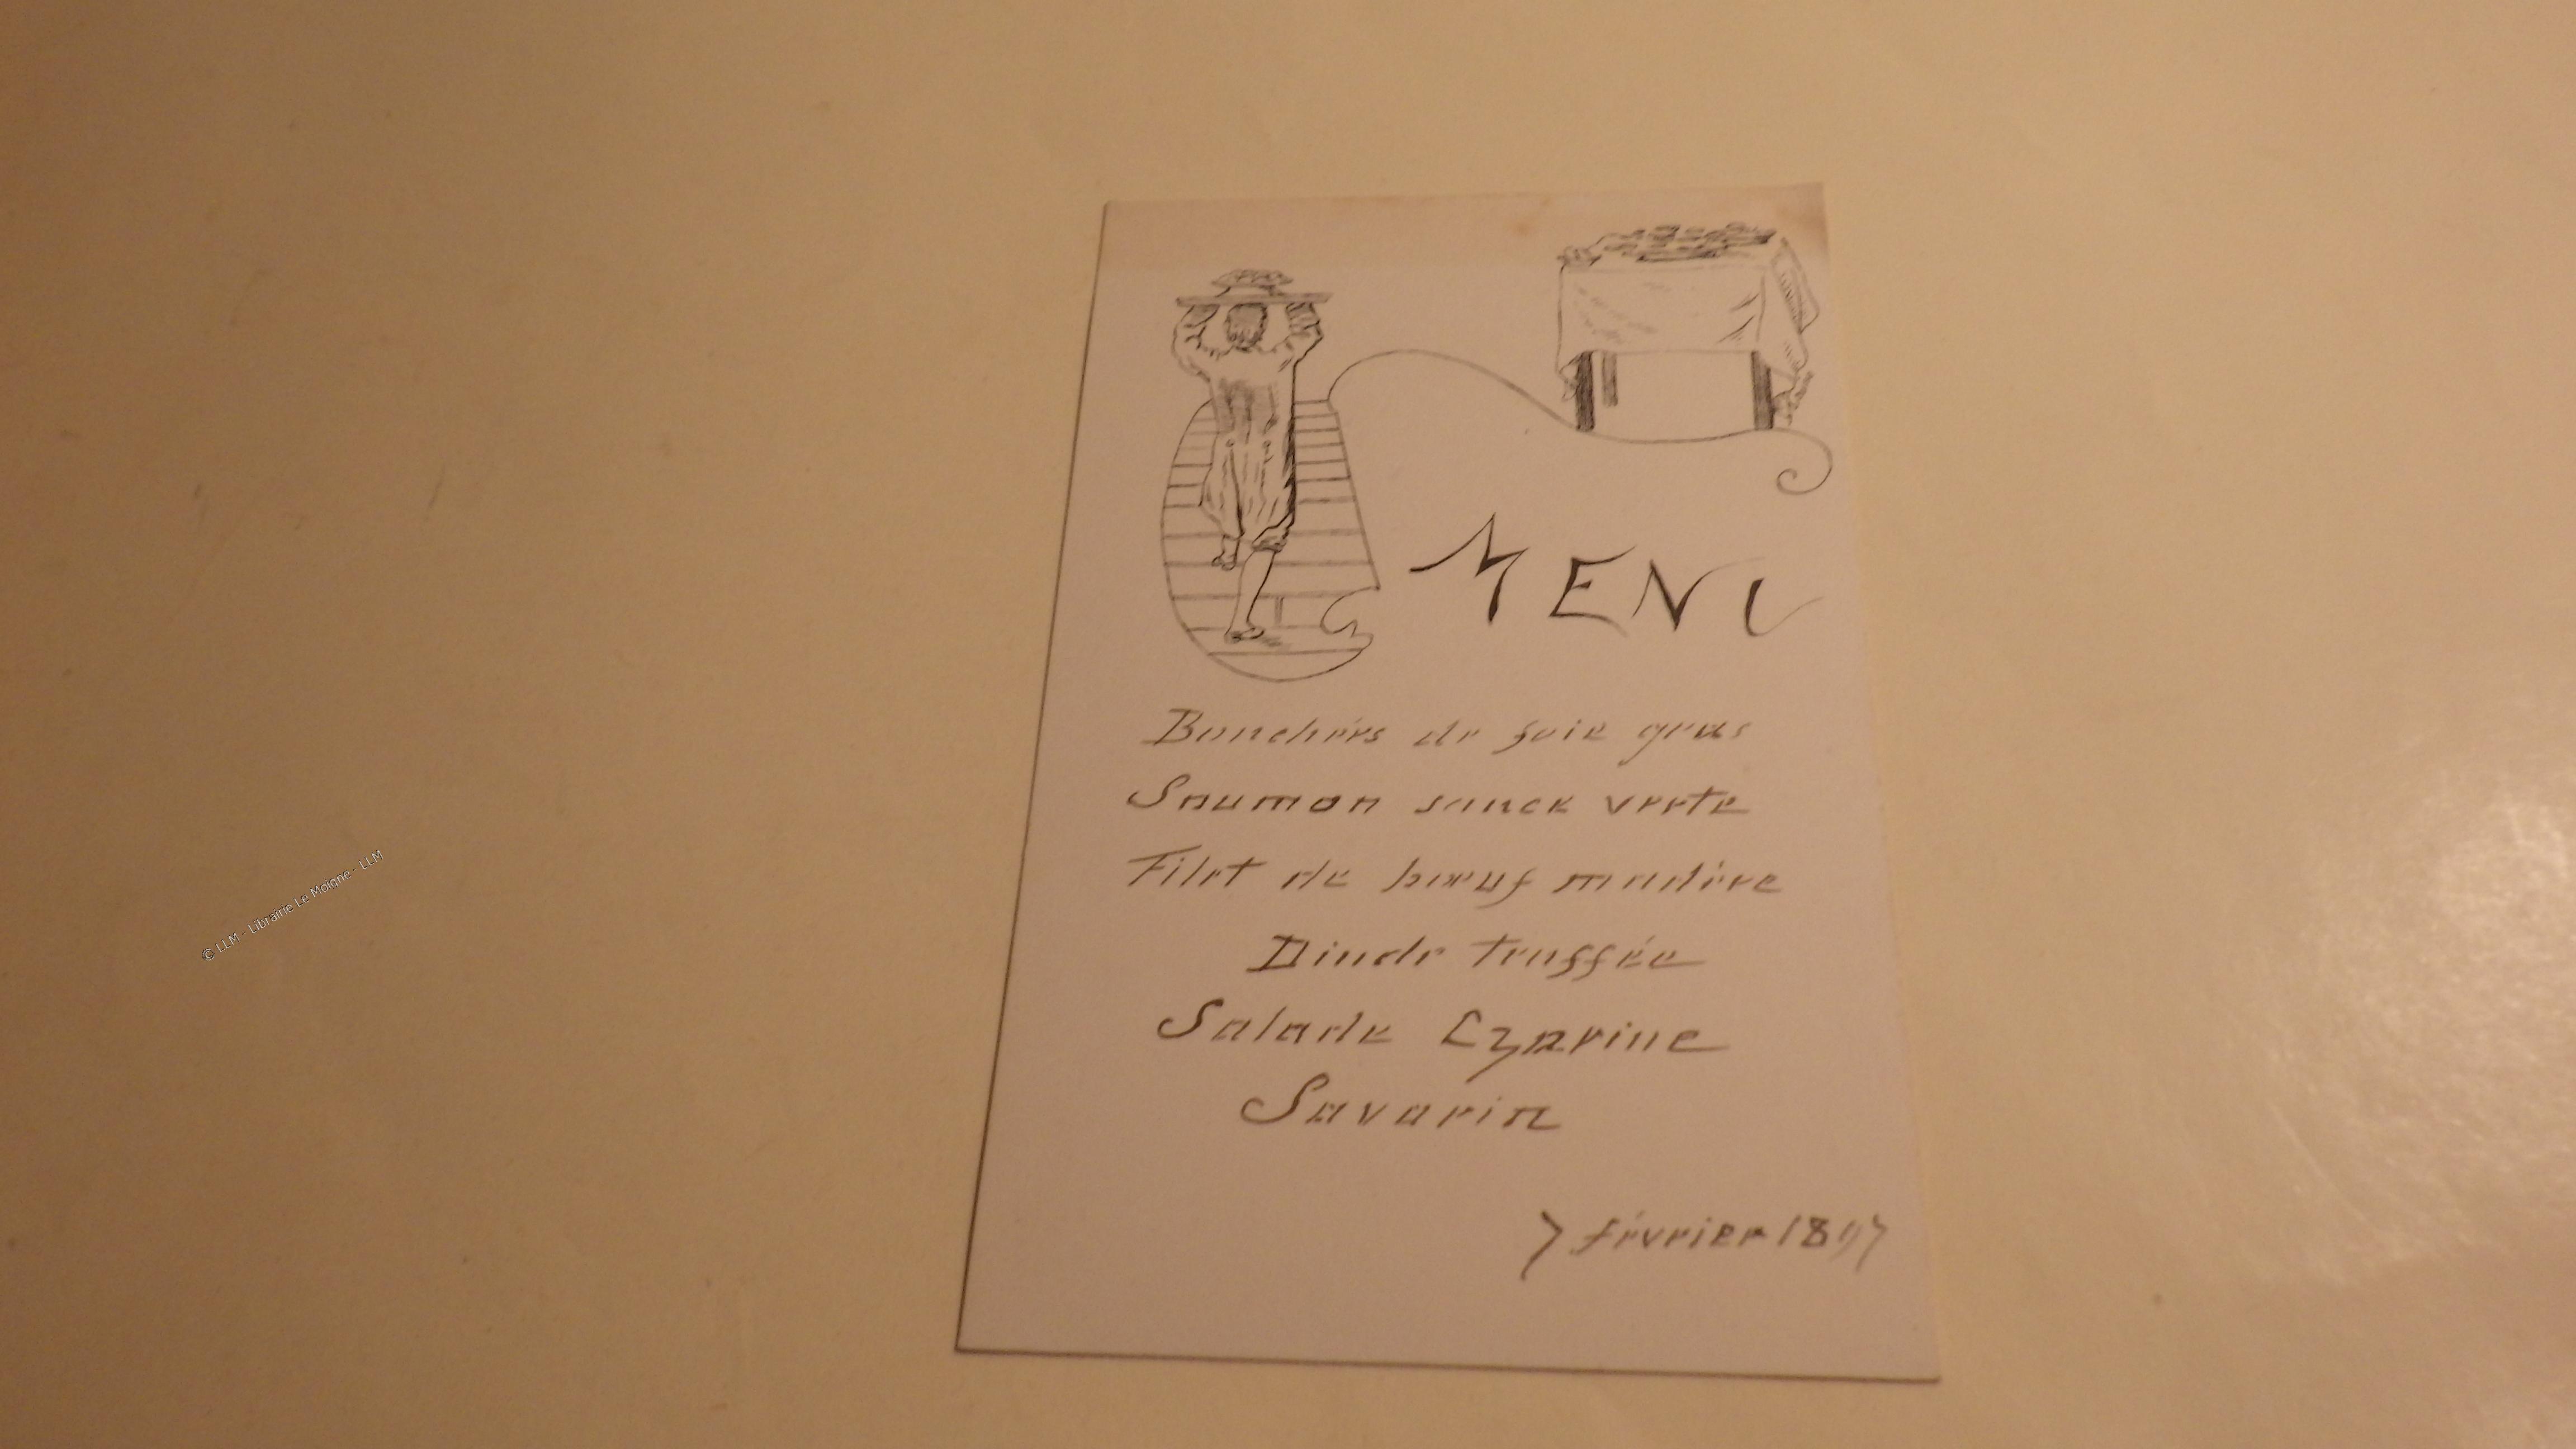 MENU
Bouchées de foie gras
Saumon sauce verte
Filet de bœuf madère
Dinde truffée
Salade Czarine
Savarin
7 février 1897
© LLM - Librairie Le Moigne - LLM